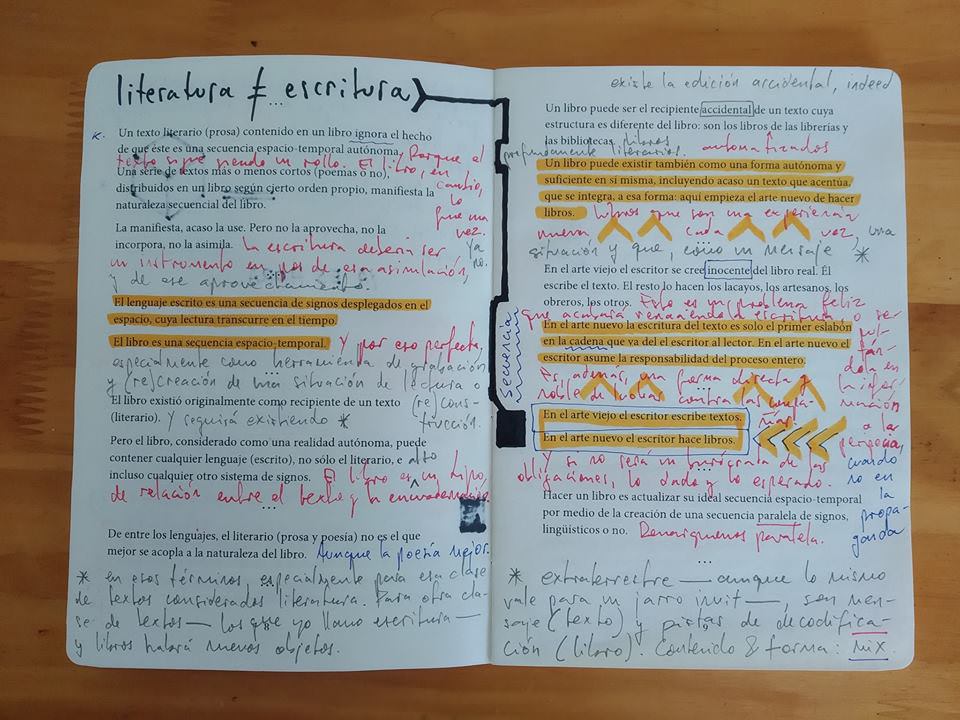 literatura ≠ escritura
Un texto literario (prosa) contenido en un libro ignora el hecho
de que éste es una secuencia espacio-temporal autónoma. Porque el
texto sigue siendo un rollo. El libro, en
cambio,
Una serie de textos más o menos cortos (poemas o no),
distribuidos en un libro según cierto orden propio, manifiesta la
naturaleza secuencial del libro.
La manifiesta, acaso la use. Pero no la aprovecha, no la
incorpora, no la asimila. La escritura debería ser
un instrumento en pos de esa asimilación,
y de ese aprovechamiento.
El lenguaje escrito es una secuencia de signos desplegados en el
espacio, cuya lectura transcurre en el tiempo.
El libro es una secuencia espacio-temporal. Y por eso perfecta,
especialmente como herramienta de grabación
y (re)creación de una situación de lectura o
(re)cons-
trucción.
El libro existió originalmente como recipiente de un texto
(literario). Y seguirá existiendo *
Pero el libro, considerado como una realidad autónoma, puede
contener cualquier lenguaje (escrito), no sólo el literario, e
incluso cualquier otro sistema de signos. El libro es un tipo
alto
de relación entre el texto y la encuadernación.
...
De entre los lenguajes, el literario (prosa y poesía) no es el que
mejor se acopla a la naturaleza del libro. Aunque la poesía mejor.
* en esos términos, especialmente para esa clase
de textos considerados literatura. Para otra cla-
se de textos — los que yo llamo escritura —
y libros habrá nuevos objetos.
existe la edición accidental, indeed
Un libro puede ser el recipiente accidental de un texto cuya
estructura es diferente del libro: son los libros de las librerías y
las bibliotecas. libros
literarios. automatizados
Un libro puede existir también como una forma autónoma y
suficiente en sí misma, incluyendo acaso un texto que acentúa,
que se integra, a esa forma: aquí empieza el arte nuevo de hacer
libros. Libros que son una experiencia
nueva cada vez, una
situación y que, como un mensaje *
En el arte viejo el escritor se cree inocente del libro real. Él
escribe el texto. El resto lo hacen los lacayos, los artesanos, los
obreros, los otros. Esto es un problema feliz
que acabaría renaciendo la escritura o ser
Secuencia
En el arte nuevo la escritura del texto es solo el primer eslabón
en la cadena que va del escritor al lector. En el arte nuevo el
escritor asume la responsabilidad del proceso entero.
Es, además, una forma directa y
noble de luchar contra las
En el arte viejo el escritor escribe textos.
En el arte nuevo el escritor hace libros.
Y si no será un burócrata de las
obligaciones, lo dado y lo esperado.
a la
cuando
no en
la
propa-
ganda
Hacer un libro es actualizar su ideal secuencia espacio-temporal
por medio de la creación de una secuencia paralela de signos,
lingüísticos o no. paralela.
...
* extraterrestre — aunque lo mismo
vale para un jarro inuit —, son men-
saje (texto) y pistas de decodifica-
ción (libro). Contenido & forma: mix.